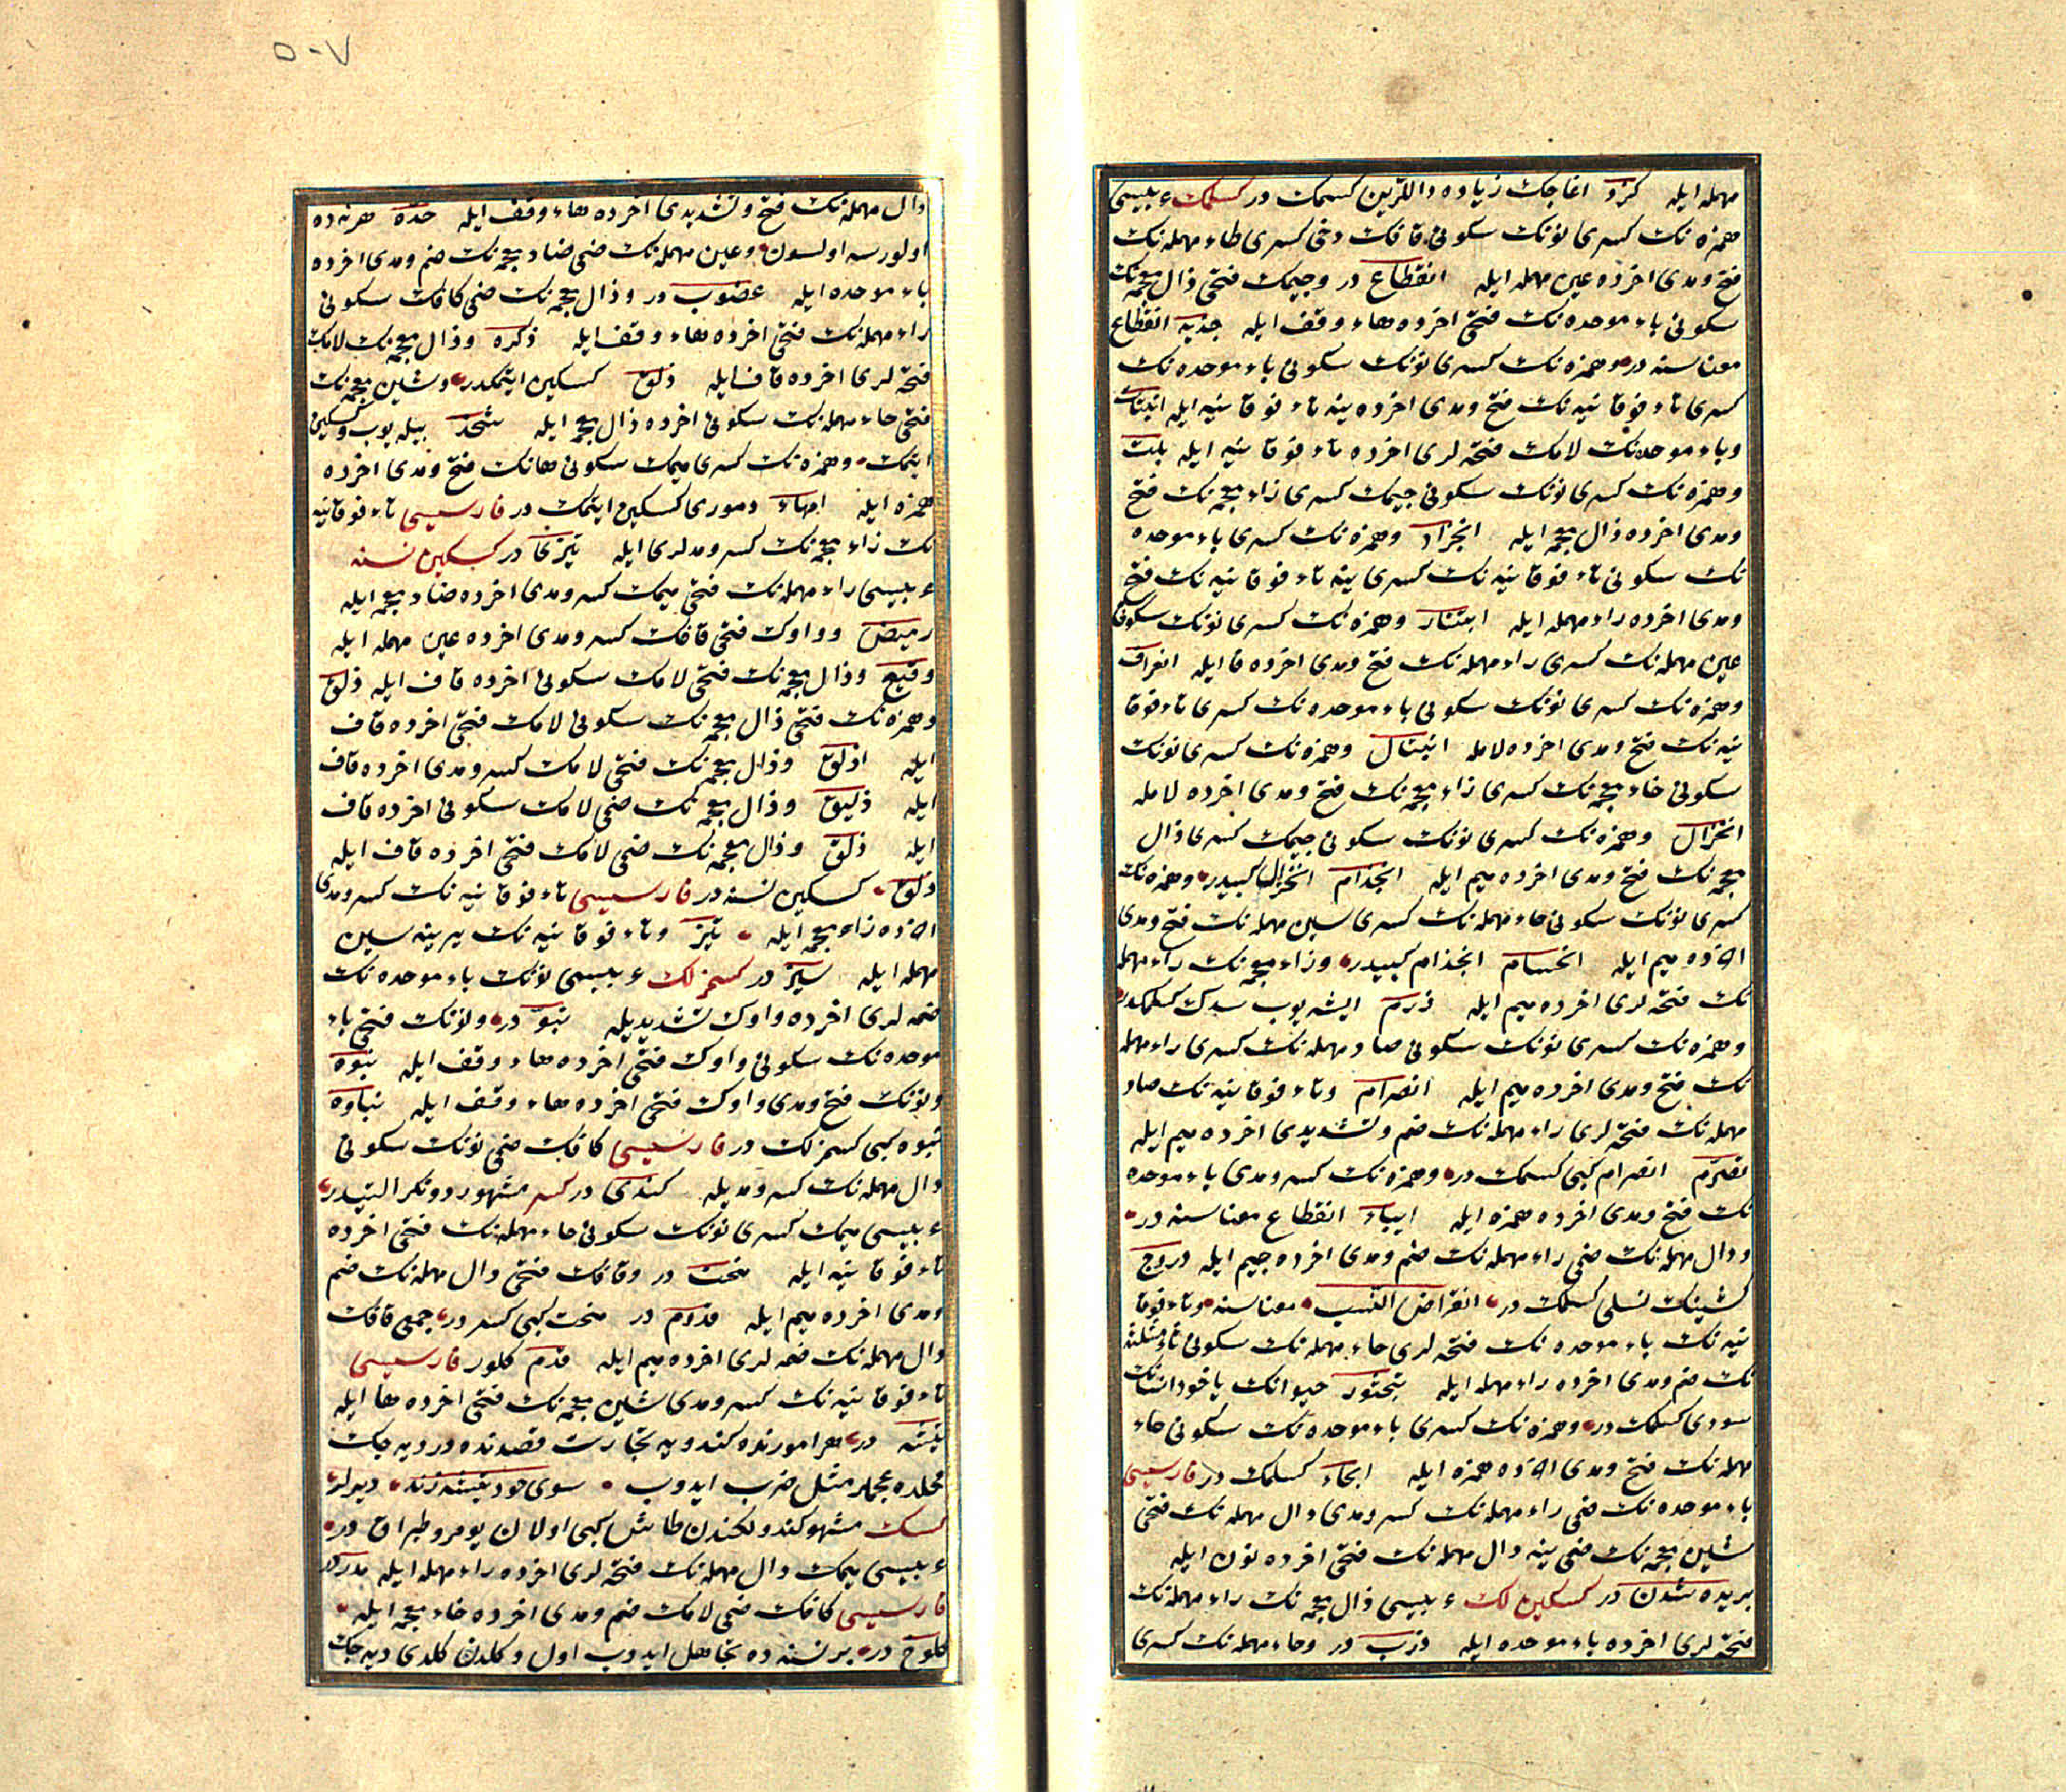 مهمله ايله كزو اغاجك زياده داللرين كسمك در كسلمك عربيسى
همزه نك كسرى نونك سكونى قافك دخى كسرى طاء مهمله نك
فتح و مدى اخرده عين مهمله ايله انقطاع در و جيمك فتحى ذال معجمه نك
سكونى باء موحده نك فتحى اخرده هاء وقف ايله جذبه انقطاع
معناسنه در و همزه نك كسرى نونك سكونى باء موحده نك
كسرى تاء فوقانيه نك فتح و مدى اخرده ينه تاء فوقانيه ايله انبتات
و باء موحده نك لامك فتحه لرى اخرده تاء فوقانيه ايله بلت
و همزه نك كسرى نونك سكونى جيمك كسرى زاء معجمه نك فتح
و مدى اخرده ذال معجمه ايله انجزاذ و همزه نك كسرى باء موحده
نك سكونى تاء فوقانيه نك كسرى ينه تاء فوقانيه نك فتح
و مدى اخرده راء مهمله ايله ابتتار و همزه نك كسرى نونك سكونى
عين مهمله نك كسرى راء مهمله نك فتح و مدى اخرده فا ايله انعراف
و همزه نك كسرى نونك سكونى باء موحده نك كسرى تاء فوقا
نيه نك فتح و مدى اخرده لامله انبتال و همزه نك كسرى نونك
سكونى خاء معجمه نك كسرى زاء معجمه نك فتح و مدى اخرده لامله
انخزال و همزه نك كسرى نونك سكونى جيمك كسرى ذال
معجمه نك فتح و مدى اخرده ميم ايله انجذام انخزال كبيدر و همزه نك
كسرى نونك سكونى حاء مهمله نك كسرى سين مهمله نك فتح و مدى
اخرده ميم ايله انحسام انجذام كبيدر و زاء معجمه نك راء مهمله
نك فتحه لرى اخرده ميم ايله زرم ايشه يوب سدك كسلمكدر
و همزه نك كسرى نونك سكونى صاد مهمله نك كسرى راء مهمله
نك فتح و مدى اخرده ميم ايله انصرام و تاء فوقانيه نك صاد
مهمله نك فتحه لرى راء مهمله نك ضم و تشديدى اخرده ميم ايله
تصرم انصرام كبى كسمك در و همزه نك كسر و مدى باء موحده
نك فتح و مدى اخرده همزه ايله ايباء انقطاع معناسنه در
و دال مهمله نك ضمى راء مهمله نك ضم و مدى اخرده جيم ايله دروج
كشينك نسلى كسلمك در انقراض النسب معناسنه و تاء فوقا
نيه نك باء موحده نك فتحه لرى حاء مهمله نك سكونى ثاء مثلثه
نك ضم و مدى اخرده راء مهمله ايله تبحثور حيوانك ياخود انسانك
سودى كسلمك در و همزه نك كسرى باء موحده نك سكونى حاء
مهمله نك فتح و مدى اخرده همزه ايله ابحاء كسلمك در فارسيسى
باء موحده نك ضمى راء مهمله نك كسر و مدى دال مهمله نك فتحى
شين معجمه نك ضمى ينه دال مهمله نك فتحى اخرده نون ايله
بريده شدن در كسكين لك عربيسى ذال معجمه نك راء مهمله نك
فتحه لرى اخرده باء موحده ايله ذرب در و حاء مهمله نك كسرى
٥٠٧
دال مهمله نك فتح و تشديدى اخرده هاء وقف ايله حده هر نه ده
اولورسه اولسون و عين مهمله نك ضمى ضاد معجمه نك ضم و مدى اخرده
باء موحده ايله عضوب در و ذال معجمه نك ضمى كافك سكونى
راء مهمله نك فتحى اخرده هاء وقف ايله ذكره و ذال معجمه نك لامك
فتحه لرى اخرده قاف ايله ذلق كسكين ايتمكدر و شين معجمه نك
فتحى حاء مهمله نك سكونى اخرده ذال معجمه ايله شحذ بيله يوب كسكين
ايتمك و همزه نك كسرى ميمك سكونى هانك فتح و مدى اخرده
همزه ايله امهاء دمورى كسكين ايتمك در فارسيسى تاء فوقانيه
نك زاء معجمه نك كسر و مدلرى ايله تيزى در كسكين نسنه
عربيسى راء مهمله نك فتحى ميمك كسر و مدى اخرده ضاد معجمه ايله
رميض و واوك فتحى قافك كسر و مدى اخرده عين مهمله ايله
وقيع و ذال معجمه نك فتحى لامك سكونى اخرده قاف ايله ذلق
و همزه نك فتحى ذال معجمه نك سكونى لامك فتحى اخرده قاف
ايله اذلق و ذال معجمه نك فتحى لامك كسر و مدى اخرده قاف
ايله ذليق و ذال معجمه نك ضمى لامك سكونى اخرده قاف
ايله ذلق و ذال معجمه نك ضمى لامك فتحى اخرده قاف ايله
ذلق كسكين نسنه در فارسيسى تاء فوقانيه نك كسر و مدى
اخرده زاء معجمه ايله تيز و تاء فوقانيه نك يرينه سين
مهمله ايله سيز در كسمزلك عربيسى نونك باء موحده نك
ضمه لرى اخرده واوك تشديديله نبو در و نونك فتحى باء
موحده نك سكونى واوك فتحى اخرده هاء وقف ايله نبوه
و نونك فتح و مدى واوك فتحى اخرده هاء وقف ايله نباوه
نبوه كبى كسمزلك در فارسيسى كافك ضمى نونك سكونى
دال مهمله نك كسر و مديله كندى در كسر مشهور دونكر التيدر
عربيسى ميمك كسرى نونك سكونى حاء مهمله نك فتحى اخرده
تاء فوقانيه ايله منحت در و قافك فتحى دال مهمله نك ضم
و مدى اخرده ميم ايله قدوم در منحت كبى كسر در جمعى قافك
دال مهمله نك ضمه لرى اخرده ميم ايله قدم كلور فارسيسى
تاء فوقانيه نك كسر و مدى شين معجمه نك فتحى اخرده ها ايله
تيشه در هر امورنده كندويه تجارت قصدنده در ديه جك
محلده عجملر مثل ضرب ايدوب سوى خود تيشه زند ديرلر
كسك مشهور كندولكندن طاش كبى اولان يومرو طپراق در
عربيسى ميمك دال مهمله نك فتحه لرى اخرده راء مهمله ايله مدر در
فارسيسى كافك ضمى لامك ضم و مدى اخرده خاء معجمه ايله
كلوخ در بر نسنه ده تجاهل ايدوب اول و كلدن كلدى ديه جك